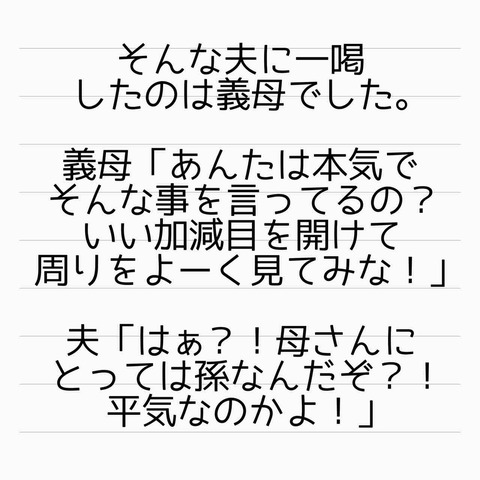 そんな夫に一喝
したのは義母でした。
義母「あんたは本気で
そんな事を言ってるの？
いい加減目を開けて
周りをよーく見てみな！」
夫「はぁ？！母さんに
とっては孫なんだぞ？！
平気なのかよ！」